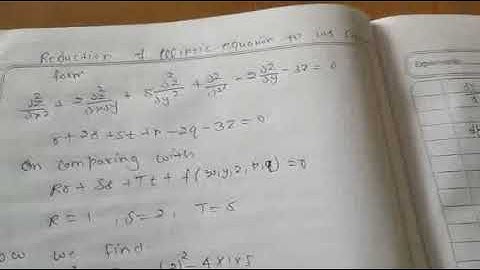 Reduction of elliptic equation to its
form
∂²z/∂x² + 2 ∂²z/∂x∂y + 5 ∂²z/∂y² + ∂z/∂x - 2 ∂z/∂y - 3z = 0
r + 2s + 5t + p - 2q - 3z = 0
On comparing with
Rr + Ss + Tt + f(x,y,z,p,q) = 0
R = 1, S = 2, T = 5
we find
(2)² - 4×1×5